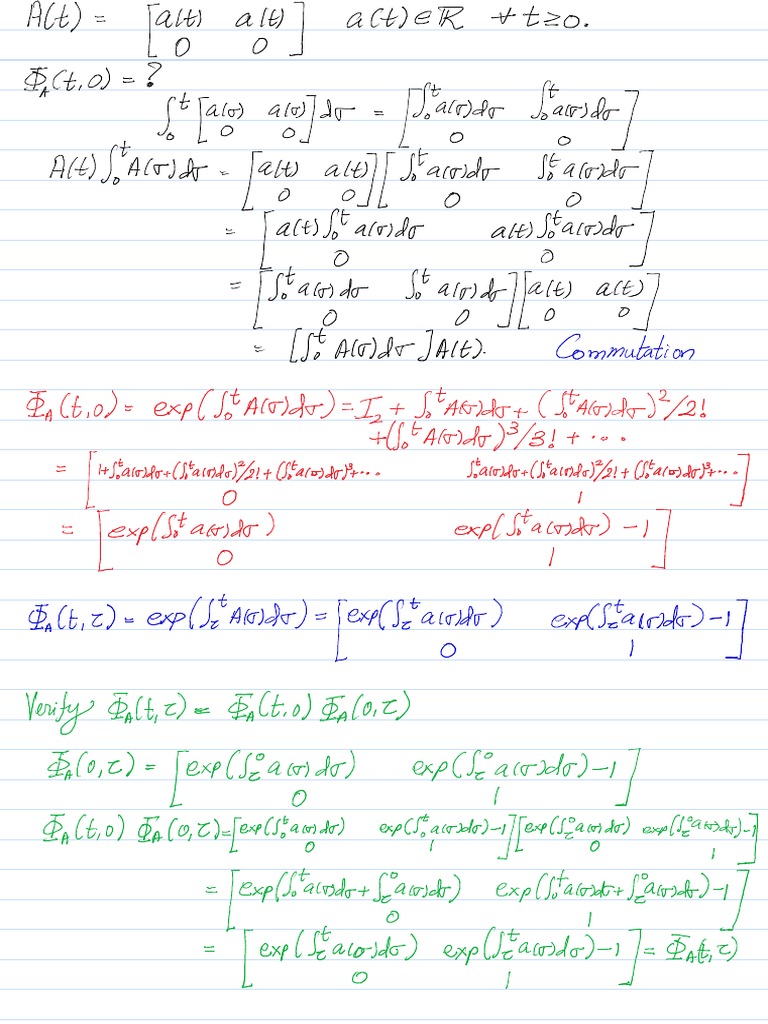 A(t) = [a(t) a(t); 0 0] a(t) ∈ ℝ ∀ t ≥ 0.
Φ_A(t,0) = ?
∫₀ᵗ [a(σ) a(σ); 0 0] dσ = [∫₀ᵗ a(σ)dσ ∫₀ᵗ a(σ)dσ; 0 0]
A(t) ∫₀ᵗ A(σ)dσ = [a(t) a(t); 0 0] [∫₀ᵗ a(σ)dσ ∫₀ᵗ a(σ)dσ; 0 0]
= [a(t) ∫₀ᵗ a(σ)dσ a(t) ∫₀ᵗ a(σ)dσ; 0 0]
= [∫₀ᵗ a(σ)dσ ∫₀ᵗ a(σ)dσ; 0 0] [a(t) a(t); 0 0]
= [∫₀ᵗ A(σ)dσ] A(t). Commutation
Φ_A(t,0) = exp(∫₀ᵗ A(σ)dσ) = I₂ + ∫₀ᵗ A(σ)dσ + (∫₀ᵗ A(σ)dσ)²/2!
+ (∫₀ᵗ A(σ)dσ)³/3! + ...
= [1+∫₀ᵗ a(σ)dσ+(∫₀ᵗ a(σ)dσ)²/2!+(∫₀ᵗ a(σ)dσ)³+... ∫₀ᵗ a(σ)dσ+(∫₀ᵗ a(σ)dσ)²/2!+(∫₀ᵗ a(σ)dσ)³+...; 0 1]
= [exp(∫₀ᵗ a(σ)dσ) exp(∫₀ᵗ a(σ)dσ) - 1; 0 1]
Φ_A(t,τ) = exp(∫_τᵗ A(σ)dσ) = [exp(∫_τᵗ a(σ)dσ) exp(∫_τᵗ a(σ)dσ) - 1; 0 1]
Verify Φ_A(t,τ) = Φ_A(t,0) Φ_A(0,τ)
Φ_A(0,τ) = [exp(∫_τ⁰ a(σ)dσ) exp(∫_τ⁰ a(σ)dσ) - 1; 0 1]
Φ_A(t,0) Φ_A(0,τ) = [exp(∫₀ᵗ a(σ)dσ) exp(∫₀ᵗ a(σ)dσ) - 1; 0 1] [exp(∫_τ⁰ a(σ)dσ) exp(∫_τ⁰ a(σ)dσ) - 1; 0 1]
= [exp(∫₀ᵗ a(σ)dσ + ∫_τ⁰ a(σ)dσ) exp(∫₀ᵗ a(σ)dσ + ∫_τ⁰ a(σ)dσ) - 1; 0 1]
= [exp(∫_τᵗ a(σ)dσ) exp(∫_τᵗ a(σ)dσ) - 1; 0 1] = Φ_A(t,τ)